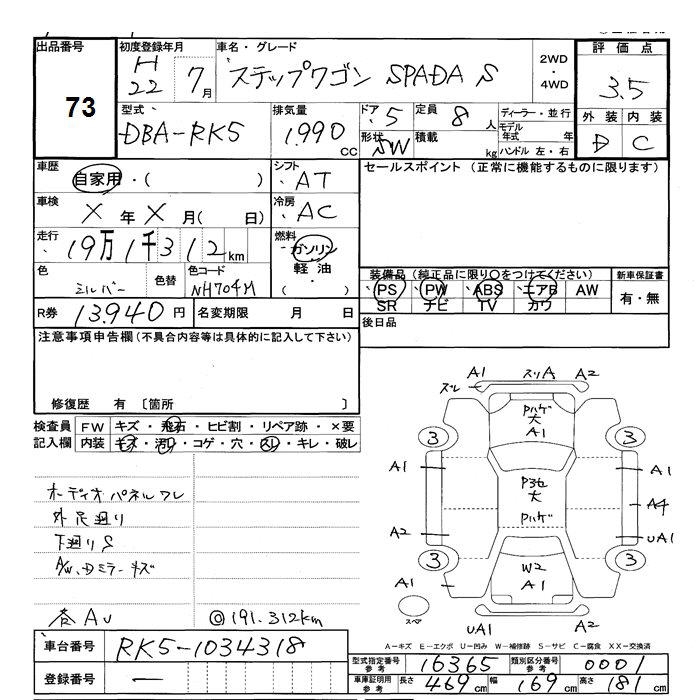 出品番号
73
初度登録年月
H22 7月
車名・グレード
ステップワゴン SPADA S
2WD・4WD
評価点
3.5
外装 内装
D C
型式
DBA-RK5
排気量
1,990 CC
ドア 5
形状 SW
定員 8 人
積載 kg
ディーラー・並行
モデル年式 年
ハンドル 左・右
車歴
自家用・( )
シフト
AT
車検
X年X月( 日)
冷房
AC
走行
19万1千312km
燃料
ガソリン
軽油
( )
色
シルバー
色替
色コード
NH704M
R券 13,940円
名変期限 月 日
セールスポイント (正常に機能するものに限ります)
装備品(純正品に限り○をつけてください)
PS PW ABS エアB AW
SR ナビ TV カワ
新車保証書
有・無
後日品
注意事項申告欄(不具合内容等は具体的に記入して下さい)
修復歴 有 〔箇所 〕
検査員記入欄
FW キズ・飛石・ヒビ割・リペア跡・×要
内装 キズ・汚レ・コゲ・穴・スレ・キレ・破レ
オーディオパネルワレ
外足廻り
下廻りS
A/W、Dミラーキズ
◎191.312km
A1 スリA A2
スレ
Pハゲ
大
A1
3 3
A1 A1
大
A4
Pハゲ
A2 UA1
3 3
W2
A1
A1
スペア
UA1 A2
A-キズ E-エクボ U-凹み W-補修跡 S-サビ C-腐食 XX-交換済
車台番号
RK5-1034318
登録番号
―
型式指定番号 参考
16365
類別区分番号 参考
0001
車庫証明用 参考
長さ 469cm 幅 169cm 高さ 181cm